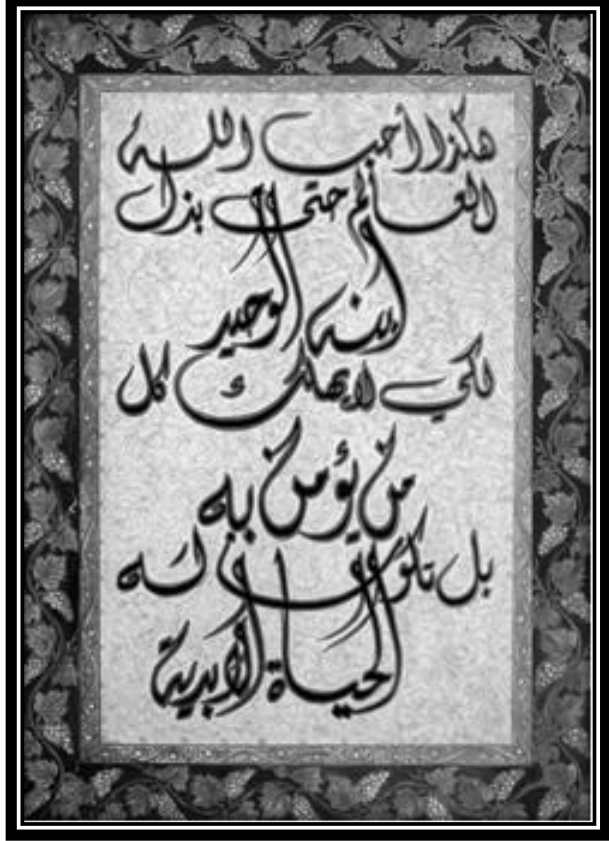 هكذا أحب الله
العالم حتى بذل
إبنه الوحيد
لكي لا يهلك كل
من يؤمن به
بل تكون له
الحياة الأبدية